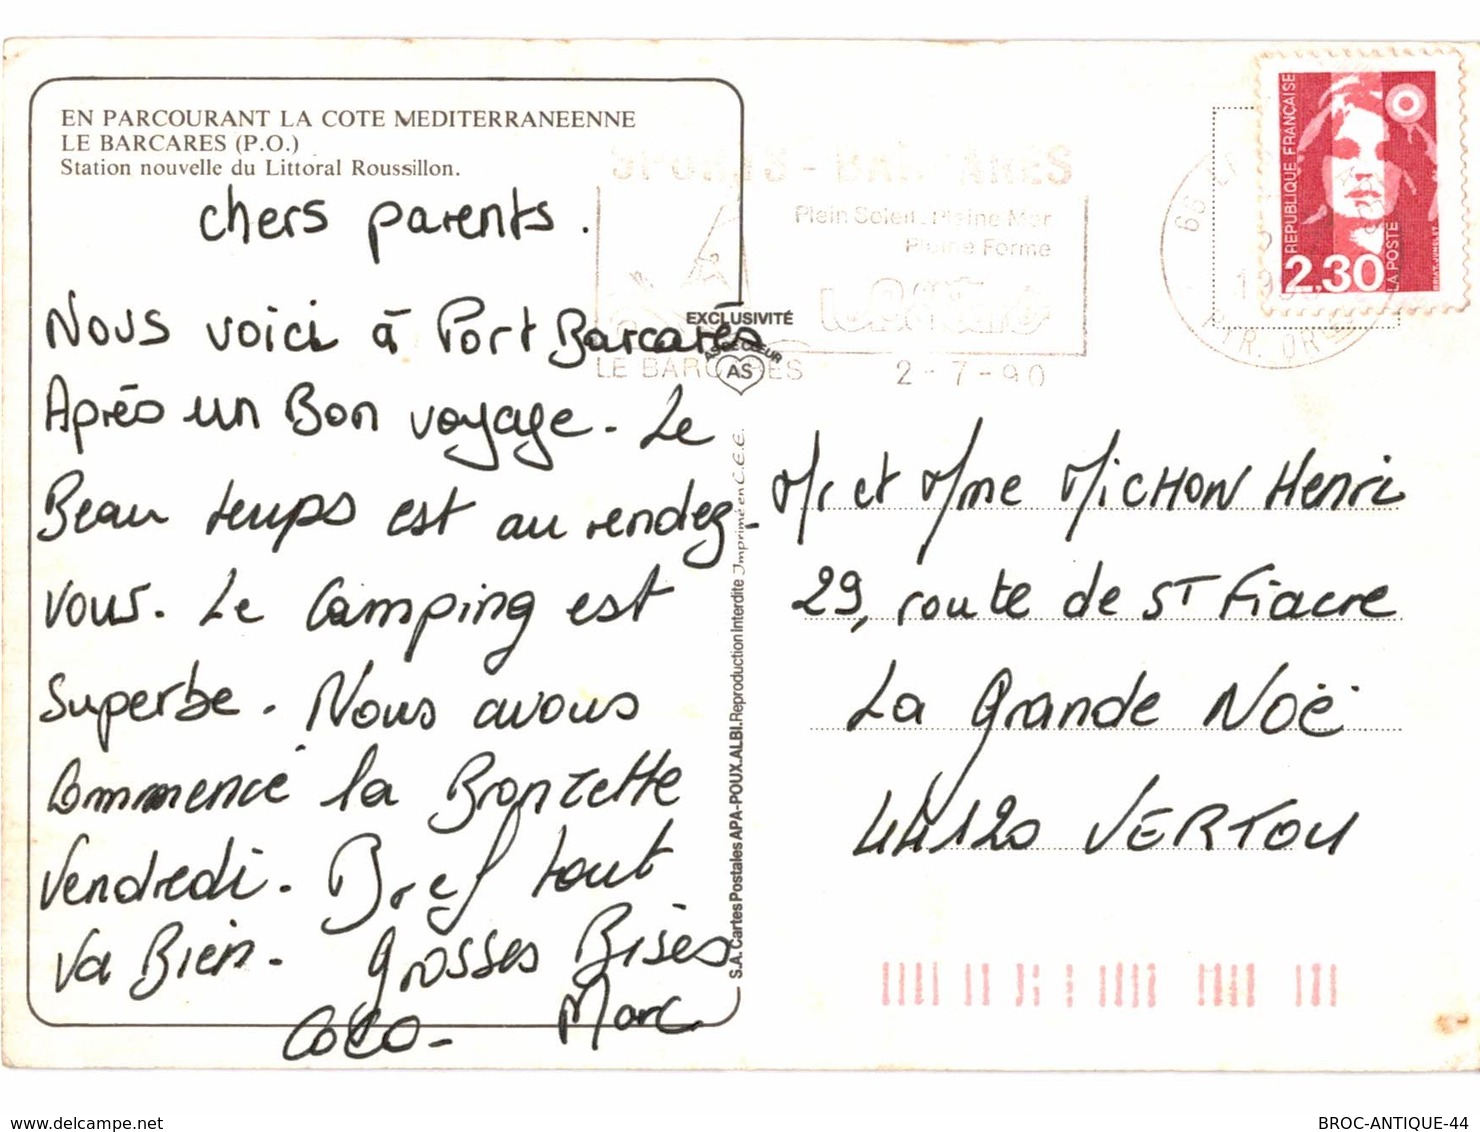 EN PARCOURANT LA COTE MEDITERRANEENNE
LE BARCARES (P.O.)
Station nouvelle du Littoral Roussillon.
chers parents.
Nous voici à Port Barcarès
Après un Bon voyage. Le
Beau temps est au rendez-
vous. Le Camping est
Superbe. Nous avons
Commencé la Bronzette
Vendredi. Bref tout
va Bien. Grosses Bises
COCO - Marc
SPORTS - BARCARES
Plein Soleil. Pleine Mer
Pleine Forme
LE BARCARES
2-7-90
EXCLUSIVITÉ
AS DE CŒUR
AS
S.A. Cartes Postales APA-POUX. ALBI. Reproduction Interdite Imprimé en C.E.E.
REPUBLIQUE FRANÇAISE
2,30
LA POSTE
Mr et Mme MICHON Henri
29, route de ST Fiacre
La Grande Noë
44120 VERTOU
www.delcampe.net
BROC-ANTIQUE-44